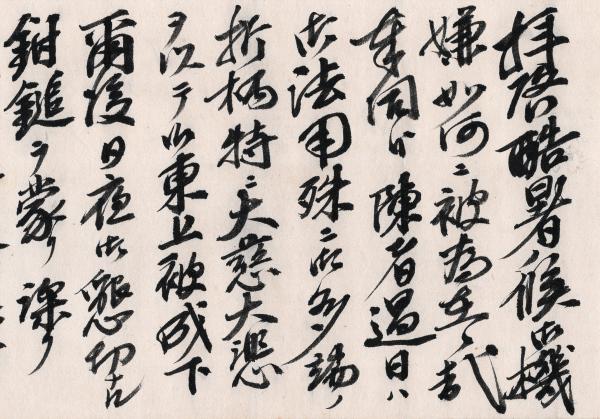 拝啓酷暑ノ候御機
嫌如何ニ被為在候哉
奉伺候陳者過日ハ
御法用殊ニ御多端ノ
折柄特ニ大慈大悲
ヲ以テ御東上被成下
爾後日夜御懇切ナル
鉗鎚ヲ蒙リ深ク